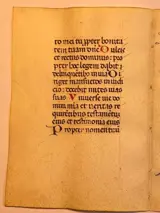 ro mei tu ppter bonita
tem tuam dne Dulcis
et rectus dominus: pro
pter hoc legem dabit
delinquentibus in via Di
riget mansuetos in iudi
cio: docebit mites vias
suas Universe vie do
mini misericordia et ve
ritas: requirentibus
testamentum
eius et testimonia eius
Propter nomen tuum